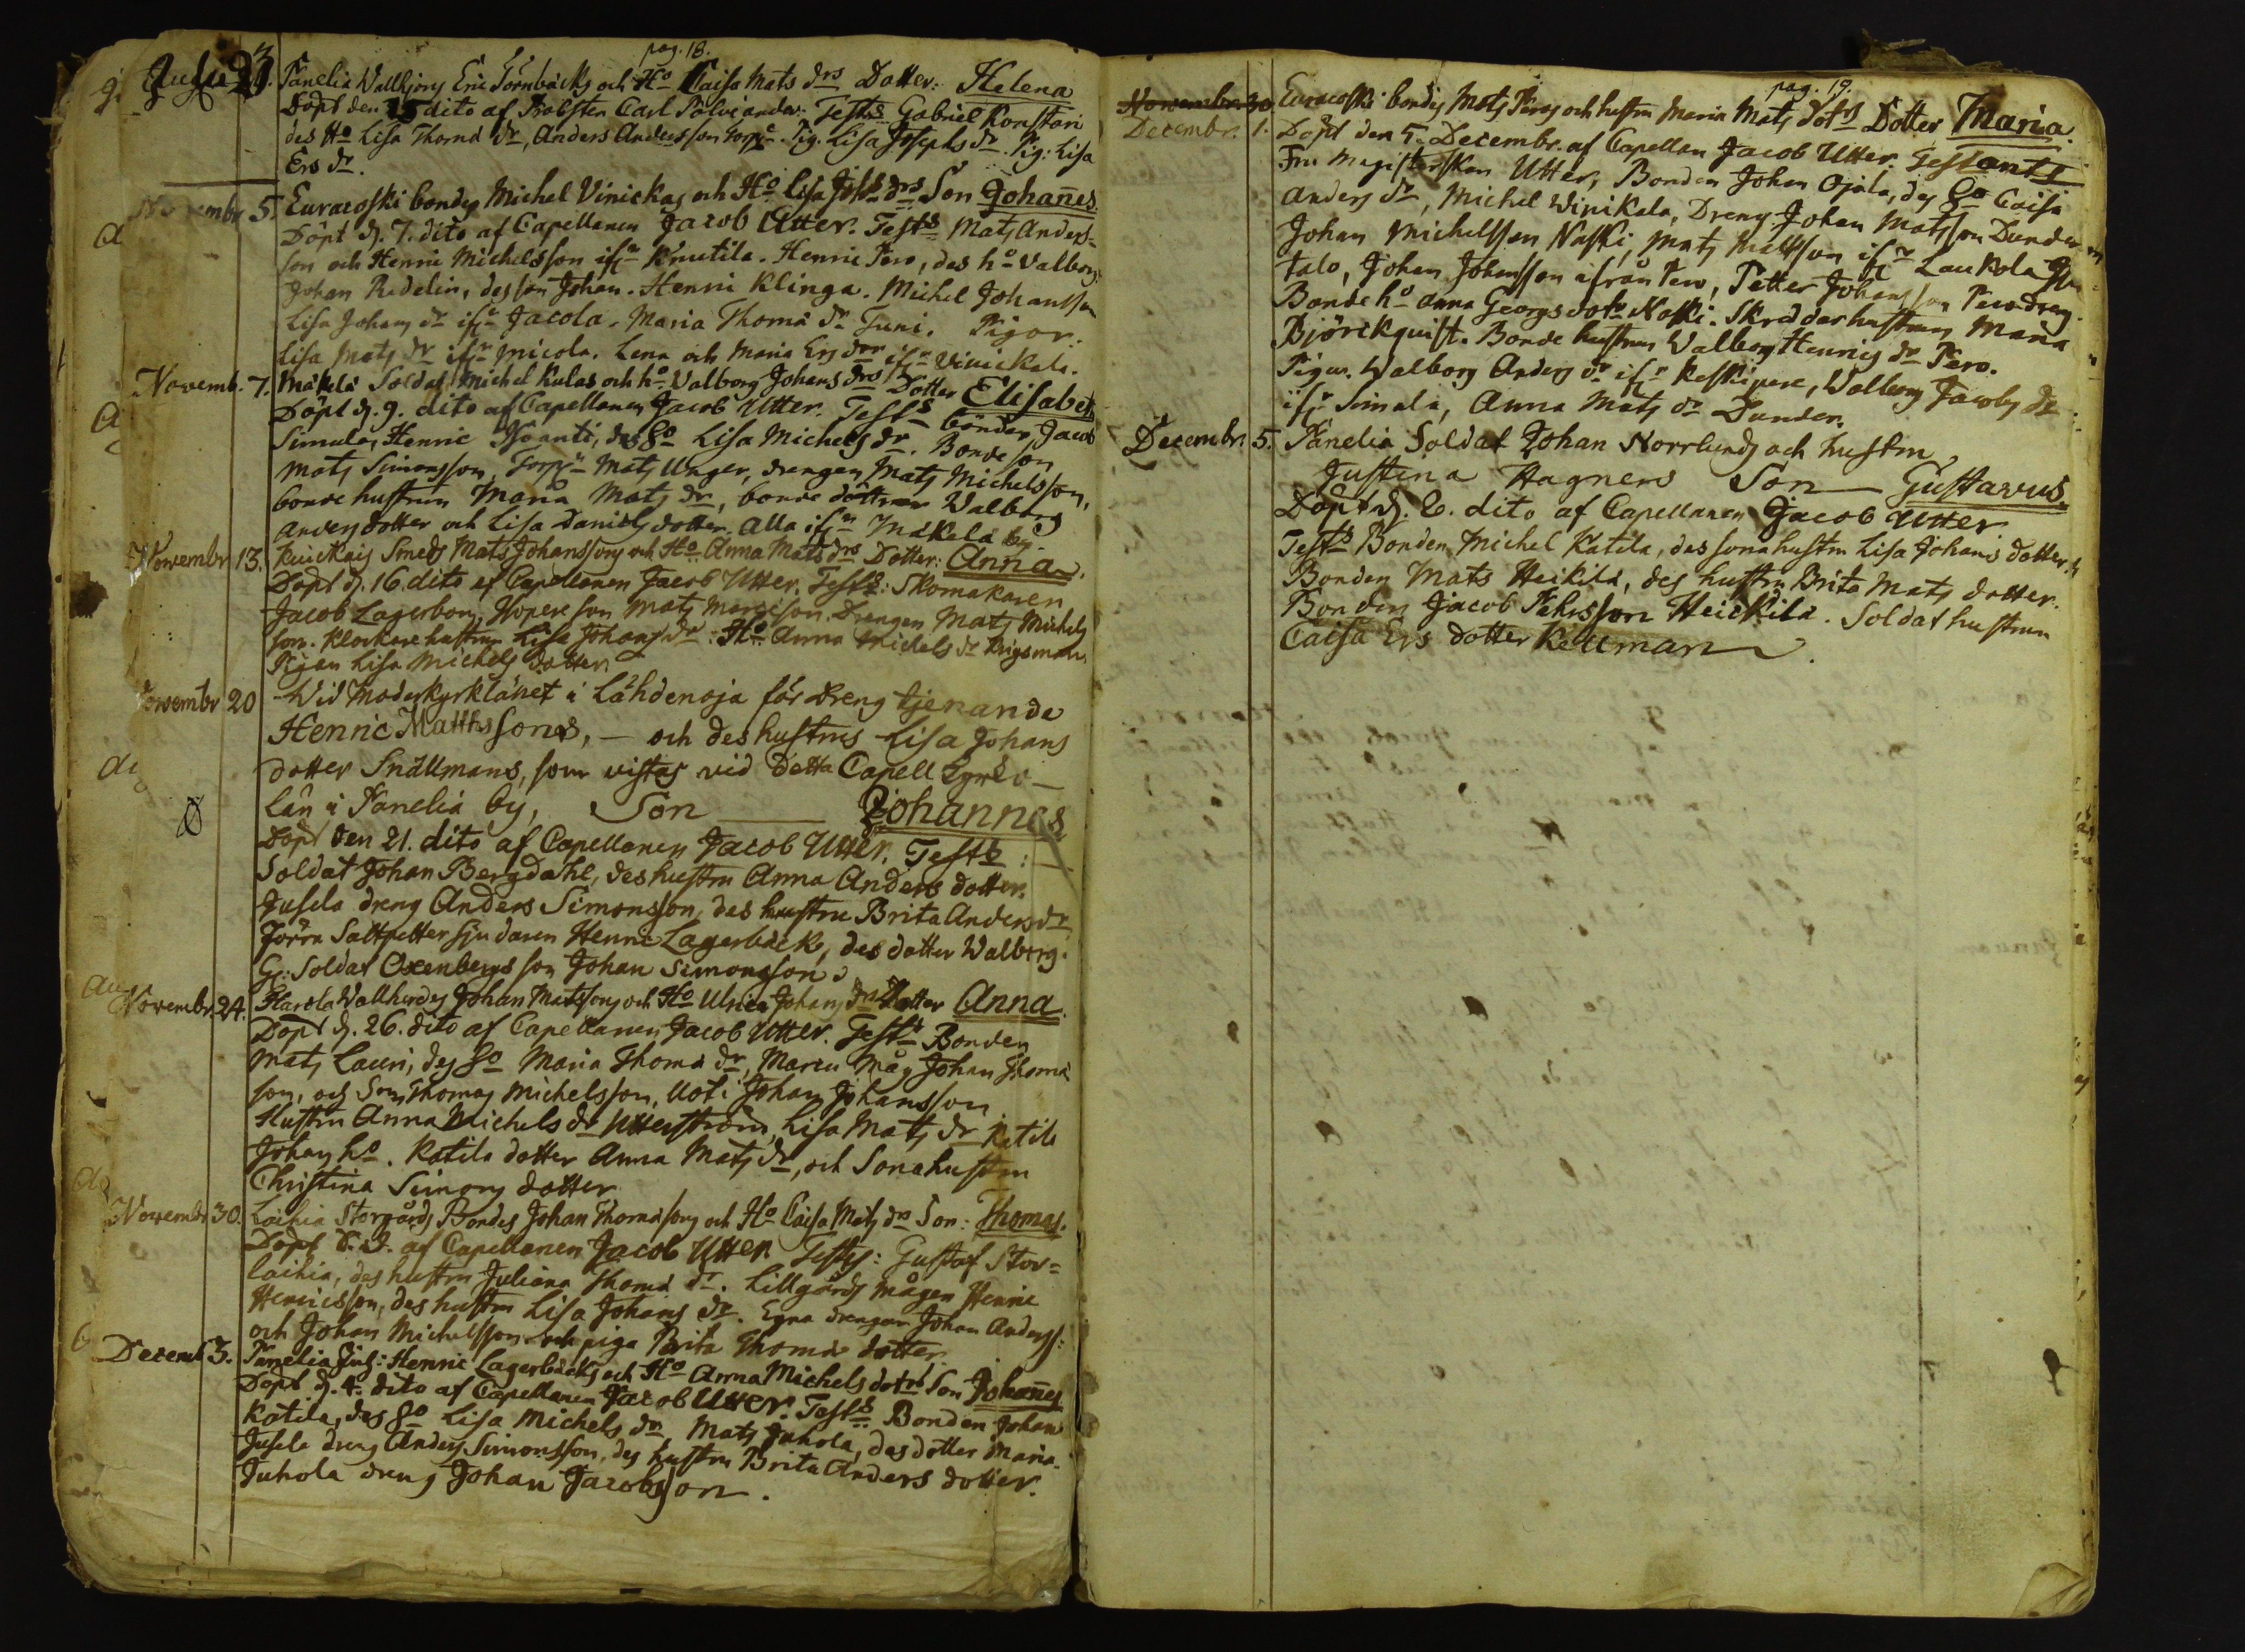 pag. 18.
Panelia Wallhjons Eric Törnbäcks och Ho Caisa Mats drs Dotter: Helena
Döpt den 25 dito af Probsten Carl Polviander. Tests Gabriel Konstari
des Ho Lisa Thoma dr, Anders Andersson Torpr. Pig. Lisa Josephs dr. Pig: Lisa
Ers dr.
Novembr 5. Euracoski bondes Michel Vinickas och Ho Lisa Johs drs Son Johañes.
Döpt d. 7. dito af Capellanen Jacob Utter. Tests Mats Anders=
son och Henric Michelsson ifr Knutila. Henric Pero, des ho Valborg.
Johan Redelin, des son Johan. Henric Klinga. Michel Johansson
Lisa Johans dr ifr Jacola. Maria Thoma dr Juni. Pigor.
Lisa Mats dr ifr Micola. Lena och Maria Ers drr ifr Vinickala.
Novemb. 7. Mäkelä Soldat Michel Kulas och ho Valborg Johans drs Dotter Elisabet
Döpt d. 9. dito af Capellanen Jacob Utter. Tests bönder Jacob
Simula, Henric Yöanti, des ho Lisa Michels dr. Bonde son
Mats Simonsson, Torpr Mats Unger, drengen Mats Michelsson,
bonde hustrun Maria Mats dr, bonde döttrar Valborg
Anders dotter och Lisa Daniels dotter. Alla ifrn Mäkelä by.
Novembr 13. Kuickais Smeds Mats Johanssons och Ho Anna Mats drs Dotter: Anna.
Döpt d. 16. dito af Capellanen Jacob Utter. Tests: Skomakaren
Jacob Lagerbom, Hopere son Mats Marcisson. Drengen Mats Michels
son. Klockare hustrun Lisa Johans dr. Ho Anna Michels dr Krigsman.
Pigan Lisa Michels dotter.
Novembr 20 Wid Moderkyrklänet i Lähdenoja för dreng tjenande
Henric Matthssons, — och des hustrus Lisa Johans
dotter Snällmans, som vistas vid Detta Capell kyrko—
län i Panelia by, Son — Johannes
Döpt den 21. dito af Capellanen Jacob Utter. Tests:
Soldat Johan Bergdahl, des hustru Anna Anders dotter.
Jusela dreng Anders Simonsson, des hustru Brita Anders dr
Förra Saltpetter sjudaren Henric Lagerbäck, des dotter Walborg.
Gl: Soldat Oxenbergs son Johan Simonsson.
Novembr 24. Harola Wallherdes Johan Matssons och Ho Ulrica Johans drs Dotter Anna.
Döpt d. 26. dito af Capellanen Jacob Utter. Tests Bonden
Mats Lauri, des ho Maria Thoma dr, Marcu Måg Johan Thoma
son, och Son Thomas Michelsson. Uoti Johan Johansson
Hustru Anna Michels dr Utterström, Lisa Mats dr Katila
Johans ho. Katila dotter Anna Mats dr, och Sonahustru
Christina Simons dotter
Novembr 30. Laihia Storgårds Bondes Johan Thomasons och Ho Caisa Mats drs Son: Thomas.
Döpt d. af Capellanen Jacob Utter Testes: Gustaf Stor=
laihia, des hustru Juliana Thoma dr. Lillgårds Mågen Henric
Henricsson, des hustru Lisa Johans dr. Egna drengar Johan Anderss:
och Johan Michelsson och piga Brita Thoma dotter.
Decemb 3. Panelia Henric Lagerbäcks och Ho Anna Michels dotrs Son Johañes
Döpt d. 4. dito af Capellanen Jacob Utter. Tests Bonden Johan
Katila, des ho Lisa Michels dr, Mats Juhola, des dotter Maria.
Jusela dreng Anders Simonsson, des hustru Brita Anders dotter.
Juhola dreng Johan Jacobsson.
pag. 19.
Novembr. 30 Euracoski bondes Mats Peras och hustru Maria Mats dotrs Dotter Maria.
Decembr. 1. Döpt den 5. Decembr. af Capellan Jacob Utter. Testants
Fru Magisterskan Utter, Bonden Johan Ojala, des ho Caisa
Anders dr, Michel Winikala, Dreng Johan Matsson Dunder
Johan Michelsson Naski, Mats Mattsson ifr Laukola
talo, Johan Johansson ifrån Pero, Petter Johansson Pero dreng.
Bonde ho Anna Georgs dotr Naski. Skreddar hustrun Maria
Björckquist. Bonde hustrun Walborg Henrics dr Pero.
Pigor. Walborg Anders dr ifr Keskipere, Walborg Jacobs dr
ifr Simula, Anna Mats dr Dunder.
Decembr. 5. Panelia Soldat Johan Norrlunds och hustru
Justina Hagners Son — Gustavus.
Döpt d. 6. dito af Capellanen Jacob Utter
Tests Bonden Michel Katila, des sonahustru Lisa Johans dotter.
Bonden Mats Heikilä, des hustru Brita Mats dotter.
Bonden Jacob Pehrsson Heickilä. Soldat hustrun
Caisa Ers dotter Kellman.